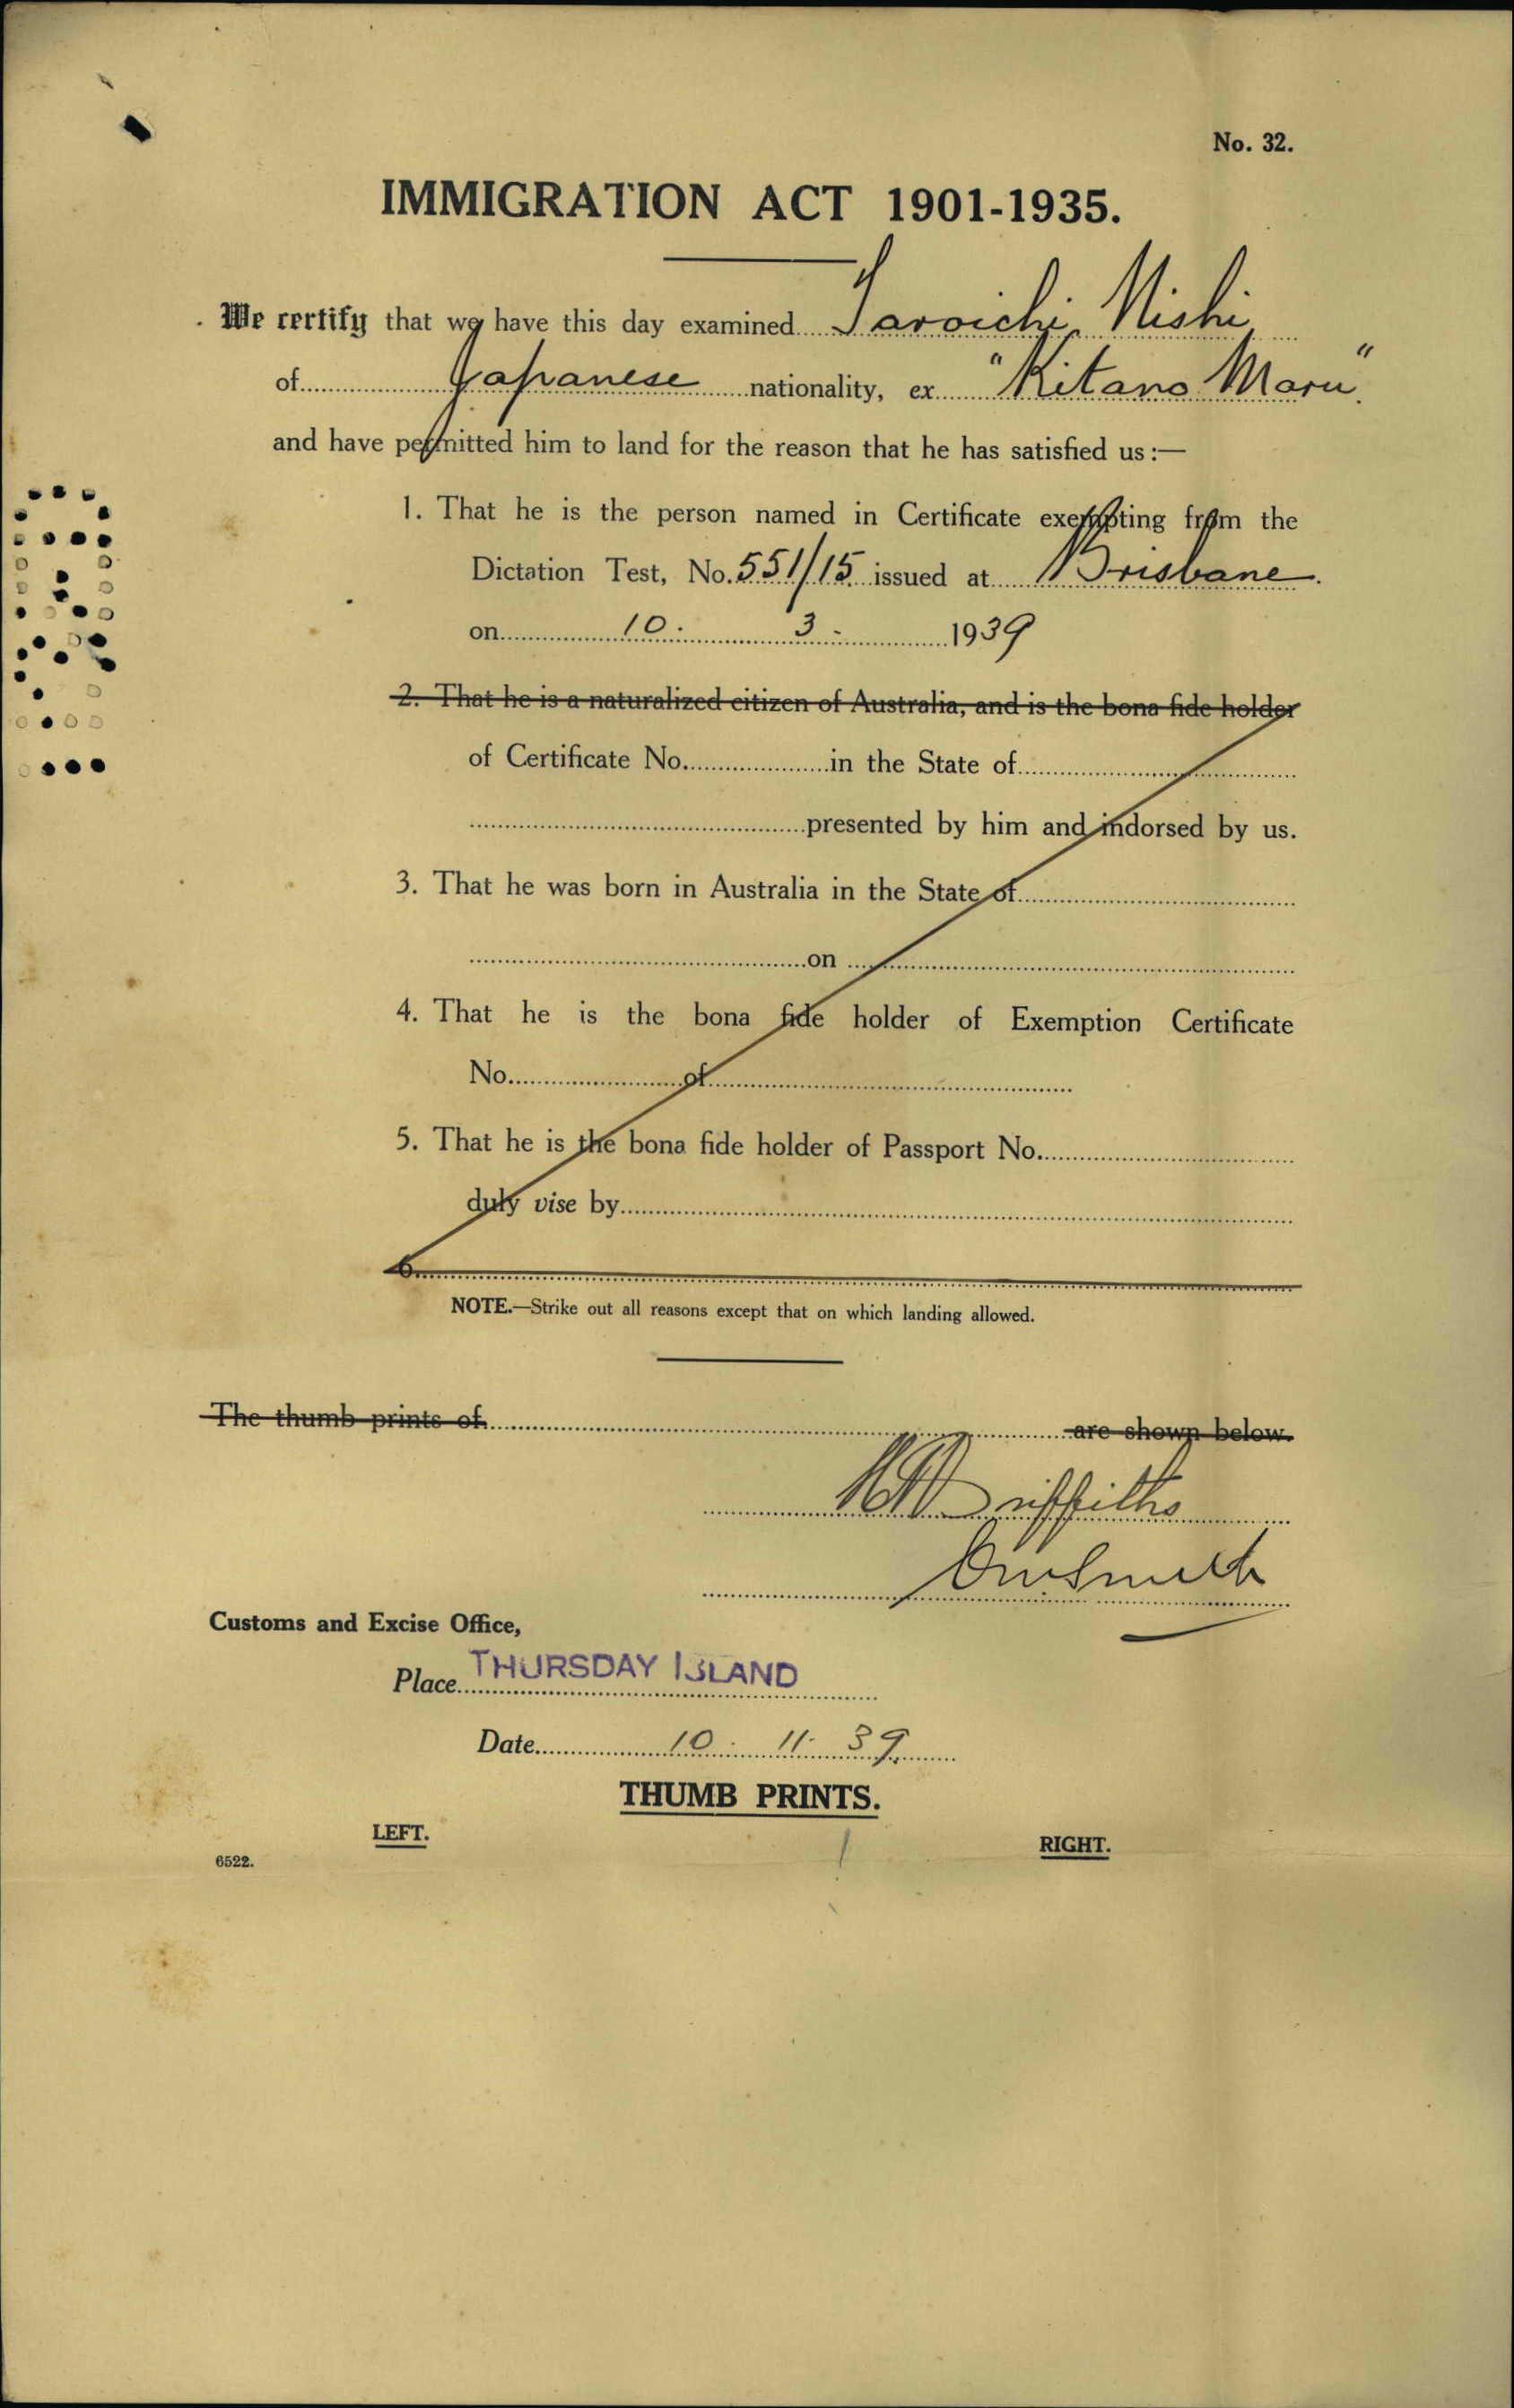 No. 32.
IMMIGRATION ACT 1901-1935.
We certify that we have this day examined Taroichi Nishi
of Japanese nationality, ex "Kitano Maru"
and have permitted him to land for the reason that he has satisfied us:—
1. That he is the person named in Certificate exempting from the
Dictation Test, No. 551/15 issued at Brisbane.
on 10. 3. 1939
2. That he is a naturalized citizen of Australia, and is the bona fide holder
of Certificate No. in the State of
presented by him and indorsed by us.
3. That he was born in Australia in the State of
on
4. That he is the bona fide holder of Exemption Certificate
No. of
5. That he is the bona fide holder of Passport No.
duly vise by
6.
NOTE.—Strike out all reasons except that on which landing allowed.
The thumb prints of are shown below.
Griffiths
Smith
Customs and Excise Office,
Place THURSDAY ISLAND
Date 10. 11. 39.
THUMB PRINTS.
LEFT.
RIGHT.
6522.